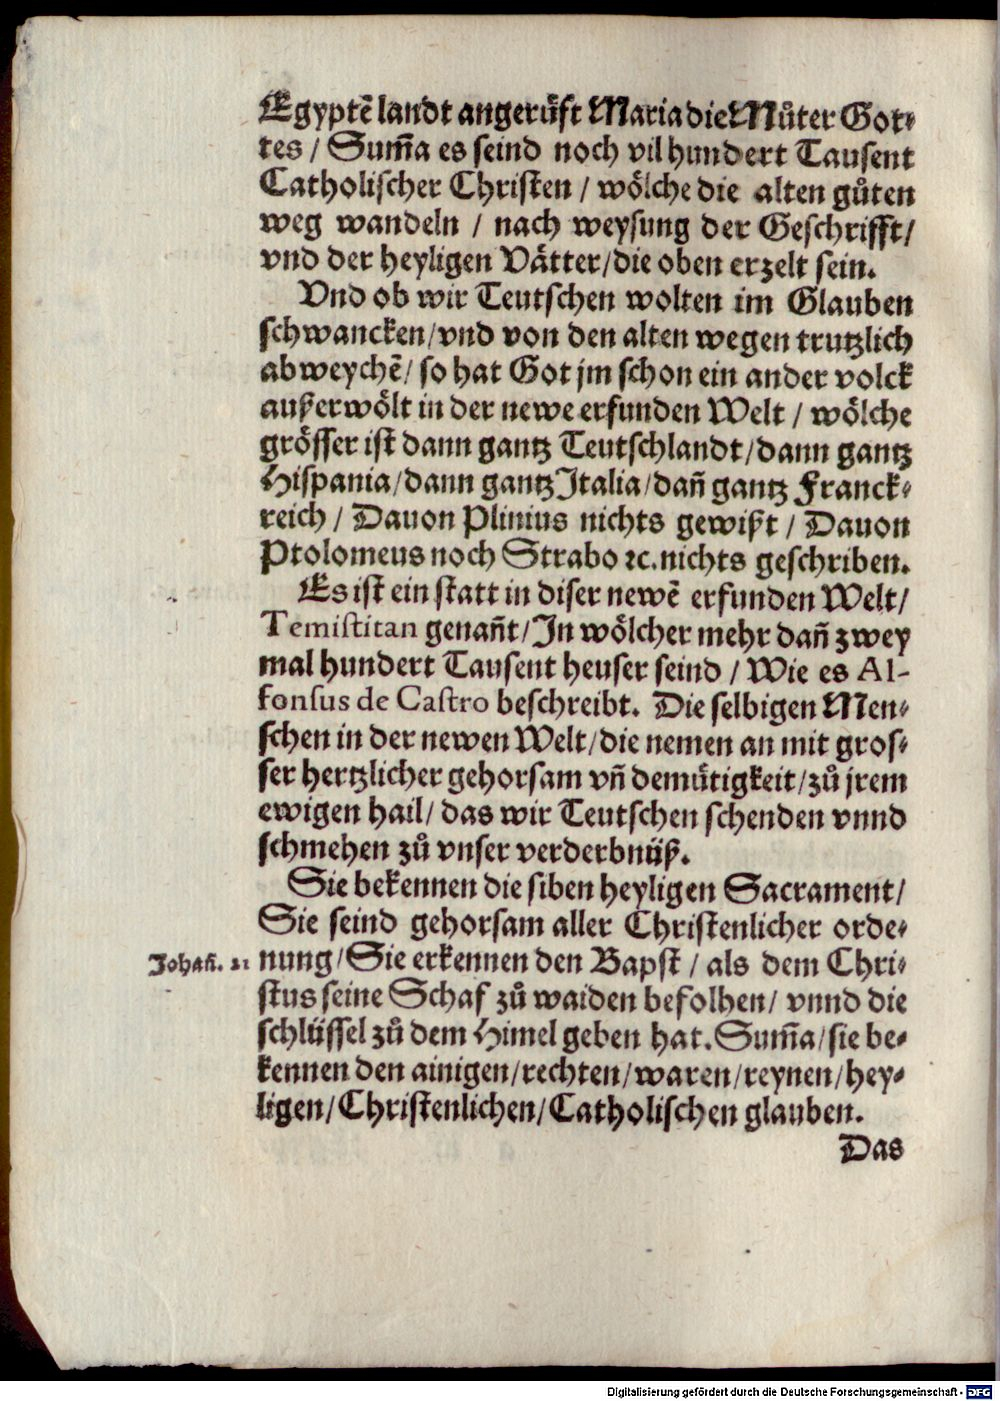 Egyptẽ landt angerüfft Maria die Můter Got⸗
tes / Sum̃a es seind noch vil hundert Tausent
Catholischer Christen / wölche die alten gůten
weg wandeln / nach weysung der Geschrifft /
vnd der heyligen Vätter / die oben erzelt sein.
Vnd ob wir Teutschen wolten im Glauben
schwancken / vnd von den alten wegen trutzlich
abweychẽ / so hat Got jm schon ein ander volck
außerwölt in der newe erfunden Welt / wölche
grösser ist dann gantz Teutschlandt / dann gantz
Hispania / dann gantz Italia / dañ gantz Franck⸗
reich / Dauon Plinius nichts gewißt / Dauon
Ptolomeus noch Strabo ꝛc. nichts geschriben.
Es ist ein statt in diser newẽ erfunden Welt /
Temistitan genañt / In wölcher mehr dañ zwey
mal hundert Tausent heuser seind / Wie es Al-
fonsus de Castro beschreibt. Die selbigen Men⸗
schen in der newen Welt / die nemen an mit gros⸗
ser hertzlicher gehorsam vñ demütigkeit / zů jrem
ewigen hail / das wir Teutschen schenden vnnd
schmehen zů vnser verderbnüß.
Sie bekennen die siben heyligen Sacrament /
Sie seind gehorsam aller Christenlicher orde⸗
Johañ. 21 nung / Sie erkennen den Bapst / als dem Chri⸗
stus seine Schaf zů waiden befolhen / vnnd die
schlüssel zů dem Himel geben hat. Sum̃a / sie be⸗
kennen den ainigen / rechten / waren / reynen / hey⸗
ligen / Christenlichen / Catholischen glauben.
Das
Digitalisierung gefördert durch die Deutsche Forschungsgemeinschaft - DFG